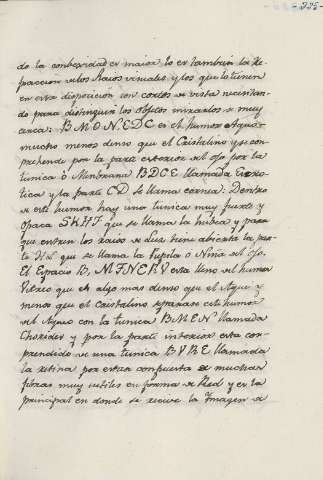 - 335 -
do la conbexidad es maior, lo es tambien la Re-
faccion de los Raios visuales, y los que lo tienen
en esta disposicion son cortos de vista necesitan-
do para distinguir los objetos mirarlos de muy
cerca: B M O N E D C es el humor Aqueo
mucho menos denso que el Cristalino y se con-
prehende por la parte exterior del ojo por la
tunica ò Menbrana B D C E llamada
y la parte C D se llama cornea: Dentro
de este humor hay una tunica muy fuerte y
opaca que se llama la hubea y para
que entren los raios de Luz tiene abierta la par-
te que se llama la Pupila ò Niña del ojo.
El Espacio B. M F N E R V esta lleno del humor
Vitreo que es algo mas denso que el Aqueo y
menos que el Cristalino, separase este humor
del Aqueo con la tunica B M E N llamada
y por la parte interior esta con-
prendido de una tunica B V R E llamada
la retina por estar conpuesta de muchas
fibras muy sutiles en forma de Red y es la
principal en donde se recive la Imagen de